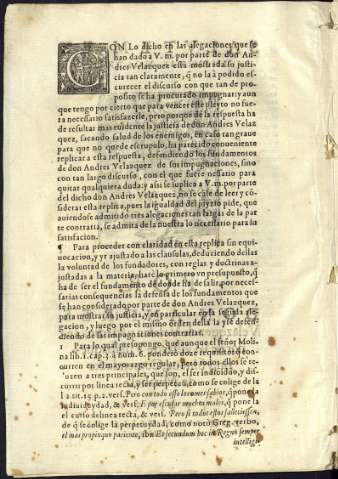 CON Lo dicho en las alegaciones, que se
han dado a V. m. por parte de don An-
dres Velazquez està mostrada su justi-
cia tan claramente, q̃ no la à podido es-
curecer el discurso con que tan de pro-
posito se ha procurado impugnar: y aun
que tengo por cierto que para vencer este pleyto no fue-
ra necessario satisfazerle, pero porque de la respuesta ha
de resultar mas euidente la justicia de don Andres Velaz
quez, sacando salud de los enemigos, en caso tan graue
para que no quede escrupulo, ha parecido conueniente
replicar a esta respuesta, defendiendo los fundamentos
de don Andres Velazquez de sus impugnaciones, sino
con tan largo discurso, con el que fuere necessario para
quitar qualquiera duda: y assi se suplica a V. m. por parte
del dicho don Andres Velazquez, no se canse de leer y có-
siderar esta replica, pues la igualdad del juyzio pide, que
auiendose admitido tres alegaciones tan largas de la par
te contraria, se admita de la nuestra lo necessario para su
satisfacion.
Para proceder con claridad en esta replica sin equi-
uocarnos, y yr ajustado a las clausulas, deduziendo dellas
la voluntad de los fundadores, con reglas y doctrinas a-
justadas a la materia, harè lo primero vn presupuesto, q̃
ha de ser el fundamento de donde ha de salir, por neces-
sarias consequencias la defensa de los fundamentos que
se han considerado por parte de don Andres Velazquez,
para mostrar su justicia, y en particular en la segunda ale-
gacion, y luego por el mismo orden della la yrè defen-
diendo de las impugnaciones contrarias.
Para lo qual presupongo, que aunque el señor Moli
na lib. 1. cap. 3. à num. 6. ponderò doze requisitos q̃ con-
curren en el mayorazgo regular, pero todos ellos se re-
duzen a tres principales, que son, el ser indiuiduo, y dis-
currir por linea recta, y ser perpetuo, como se colige de la
l. 2. tit. 15. p. 2. vers. Pero con todo esso los omes sabios, q̃ pone la
indiuiduydad, & vers. E por escusar muchos males, q̃ pone la
el curso de linea recta, & vers. Pero si todos estos falleciessen,
de q̃ se colige la perpetuydad, como notò Greg. verbo,
el mas propinquo pariente, ibi: Et secundum hoc in Regno semper
intellegi-